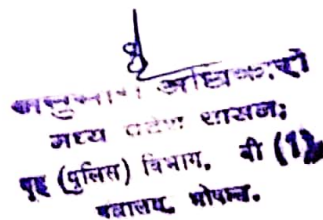 अनुभाग अधिकारी
मध्य प्रदेश शासन,
गृह (पुलिस) विभाग, बी (1)
मंत्रालय, भोपाल.